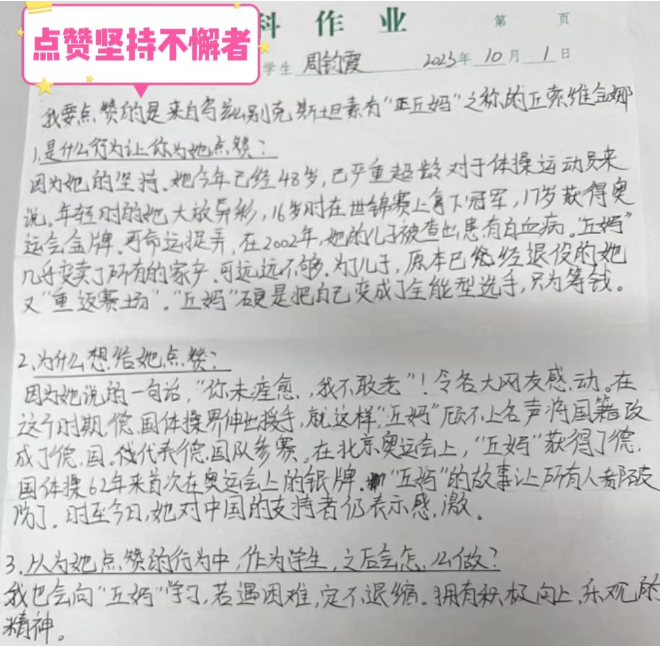 点赞坚持不懈者
科作业
第 页
学生 周钧霞 2023年10月1日
我要点赞的是来自乌兹别克斯坦素有“丘妈”之称的丘索维金娜
1.是什么行为让你为她点赞？
因为她的坚持。她今年已经48岁，已严重超龄对于体操运动员来
说。年轻时的她大放异彩，16岁时在世锦赛上拿下冠军，17岁获得奥
运会金牌。可命运捉弄，在2002年，她的儿子被查出患有白血病。“丘妈”
几乎变卖了所有的家产，可远远不够，为了儿子，原本已经退役的她
又“重返赛场”。“丘妈”硬是把自己变成了全能型选手，只为筹钱。
2.为什么想给她点赞？
因为她说的一句话，“你未痊愈，我不敢老”！令各大网友感动。在
这个时期，德国体操界伸出援手，就这样“丘妈”顾不上名声将国籍改
成了德国。代表德国队参赛。在北京奥运会上，“丘妈”获得了德
国体操62年来首次在奥运会上的银牌。“丘妈”的故事让所有人都破
防了。时至今日，她对中国的支持者仍表示感激。
3.从为她点赞的行为中，作为学生，之后会怎么做？
我也会向“丘妈”学习，若遇困难，定不退缩。拥有积极向上，乐观的
精神。